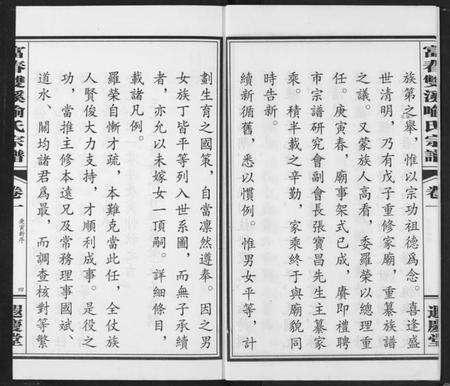 富春雙溪喻氏宗譜
卷一
遐慶堂
族第之舉，惟以宗功祖德為念。喜逢盛
世清明，乃有戊子重修家廟，重纂族譜
之議。又蒙族人高看，委羅榮以總理重
任。庚寅春，廟事架式已成，賡即禮聘
市宗譜研究會副會長張寶昌先生主纂家
乘。積半載之辛勤，家乘終于與廟貌同
時告新。
續新循舊，悉以慣例。惟男女平等，計
劃生育之國策，自當凛然遵奉。因之男
女族丁皆平等列入世系圖，而無子承續
者，亦允以未嫁女一頂嗣。詳細條目，
載諸凡例。
羅榮自慚才疏，本難克當此任，全仗族
人賢俊大力支持，才順利成事。是役之
功，當推主修本遠兄及常務理事國斌、
道水、關均諸君為最，而調查核對等繁
富春雙溪喻氏宗譜
卷一
庚寅新序
四